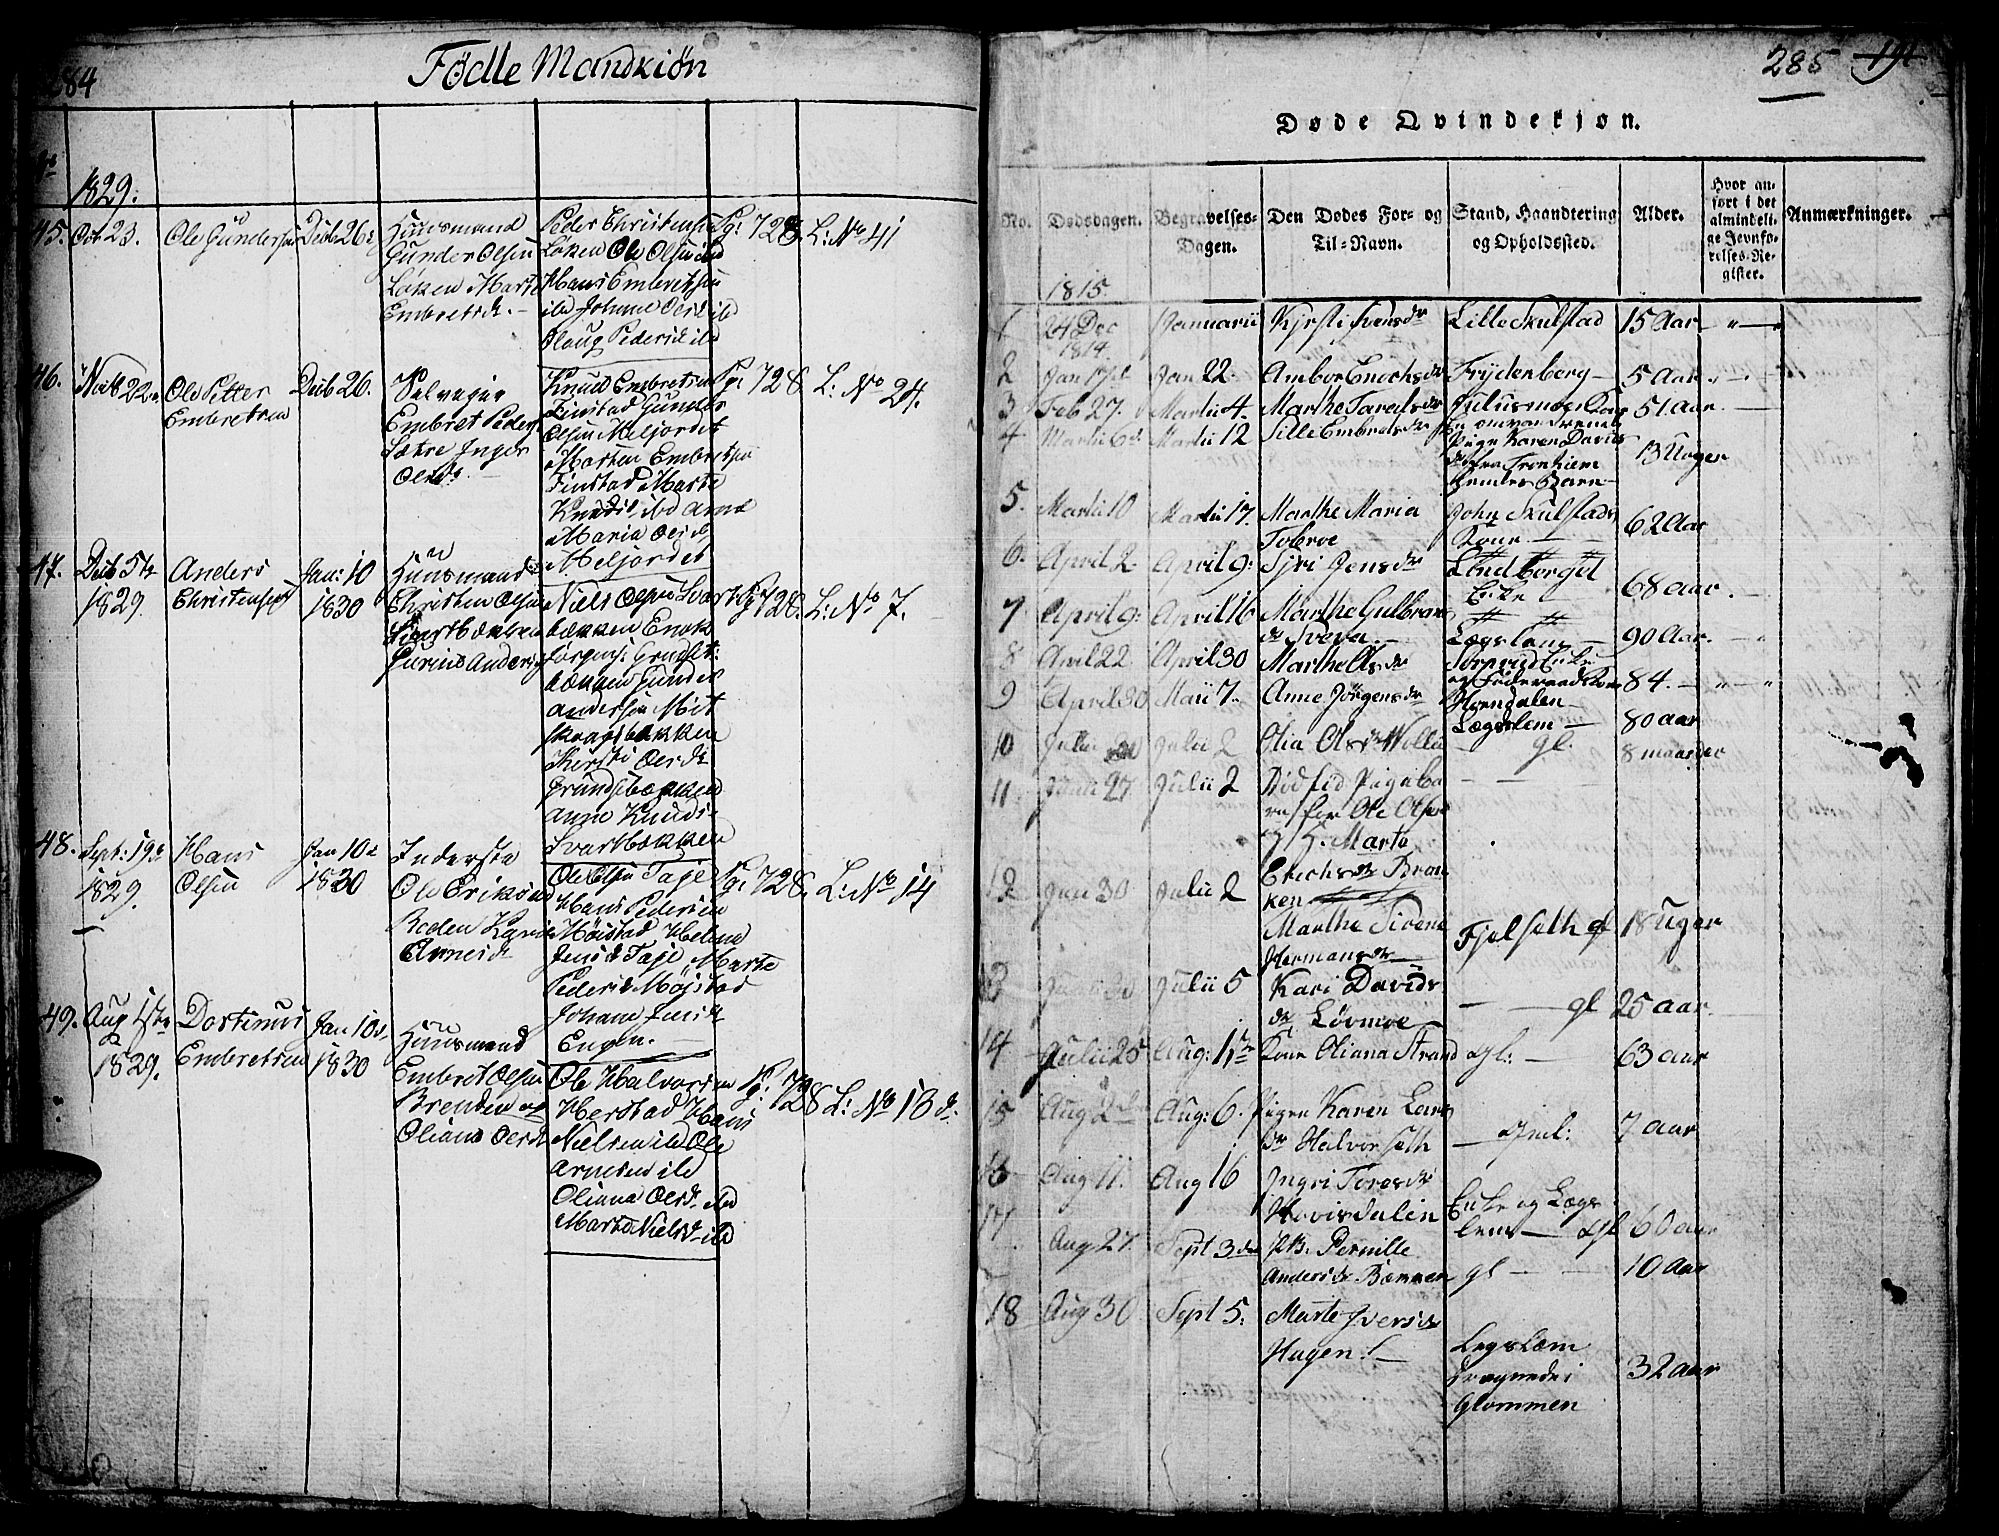 284
Födte Mandkiön
No
1829.
45. Oct 23. Ole Gundersen Decb 26. Huusmand Gunder Olsen Löken Marte Embretsd.
Peder Christensen
Löken Ole Olsen ibd
Hans Embretsen
ibd Johanne Olsd ibd
Olaug Pedersd ibd
Pg. 728. L: No 41
46. Novb 22. Ole Petter Embretsen Decb 26. Selveyer Embret Peders. Sætre Inger Olsd.
Knud Embretsen
Finstad Gunder
Olsen Meljordet
Morten Embretsen
Finstad Marte
Knudsd. ibd Anne
Maria Olsd
Meljordet
Pg. 728 L: No 24.
47. Decb 5te 1829. Anders Christensen Jan: 10 1830 Huusmand Christen Olsen Svartbækken Gurine Andersd
Niels Olsen Svart
bækken Enok
Jörgens. Grunds
bækken Gunder
Andersen Mit
skogsbækken
Kirsti Olsd
Grundsbækken
Anne Knuds.
Svartbækken
Pg 728. L: No 7.
48. Sept: 19de 1829. Hans Olsen Jan 10de 1830 Inderste Ole Eriksen Boden Kari Arnesd
Ole Olsen Taje
Hans Pedersen
Möistad Helene
Jensd Taje, Marte
Pedersd Möjstad
Johane Jensd
Engen.
Pg. 728. L: No 14
49. Aug 1ste 1829. Dortinus Embretsen Jan 10de 1830 Huusmand Embret Olsen Brenden og Oliane Olsd
Ole Halvorsen
Herstad Hans
Nielsen ibd Ole
Arnesen ibd
Oliana Olsd. ibd
Marte Nielsd. ibd
Pg. 728 L: No 13 d.
285 191
Döde Qvindekjön.
No. Dödsdagen. Begravelses-Dagen. Den Dödes For- og Til-Navn. Stand, Haandtering og Opholdssted. Alder. Hvor anført i det almindelige Jevnførelses-Register. Anmærkninger.
1815.
1 24 Dec 1814. Januarii Kirsti Svensdr Lille Skulstad 15 Aar
2 Jan 17d Jan 22. Ambor Enochsdr Frydenberg 5 Aar
3 Feb 27. Martii 4. Marthe Taralsdr Julusmoen Kone 51 Aar.
4 Martii 6d. Martii 12 Sille Embretsdr en omvandrende Pige Karen Davids dr fra Tronhiem hendes Barn 13 Uger
5. Martii 10 Martii 17. Marthe Maria Tobroe John Skulstads Kone 62 Aar
6. April 2 April 9: Siri Jensdr Lindberget Enke 68 aar.
7 April 9: April 16 Marthe Gulbrandsdr Sveen. Lægslem 90 Aar.
8 April 22 April 30 Marthe Olsdr Torprud Enke og Föderaads Kone 84.
9 April 30 Maii 7. Anne Jörgensdr Horndalen Lægslem 80 aar
10 Julii 2 Olia Olsdr Wollen gl. 8 maaneder
11 Junii 27 Julii 2 Dödföd Pigebarn for Ole Olsen og H. Marte Enochsdr Bronken
12 Jun 30 Julii 2 Marthe Sirene Hermansdr Fjelseth gl 18 Uger
13 30 Julii 5 Kari Davidsdr Lövmoe gl 25 aar.
14 Julii 25 Aug: 1ste Kone Oliana Strand gl: 63 aar
15 Aug 2den Aug: 6. Pigen Karen Larsdr Halvorseth gml: 7 aar
16 Aug 11. Aug 16 Ingri Toresdr Hovisdalen Enke og Lægslem gl 60 aar
17 Aug 27. Sept 3die PB. Pernille Andersdr Bæmmen gl 10 Aar
18 Aug 30 Sept 5. Marte Iversdr Hagen Legslæm Druknede i Glommen 32 aar